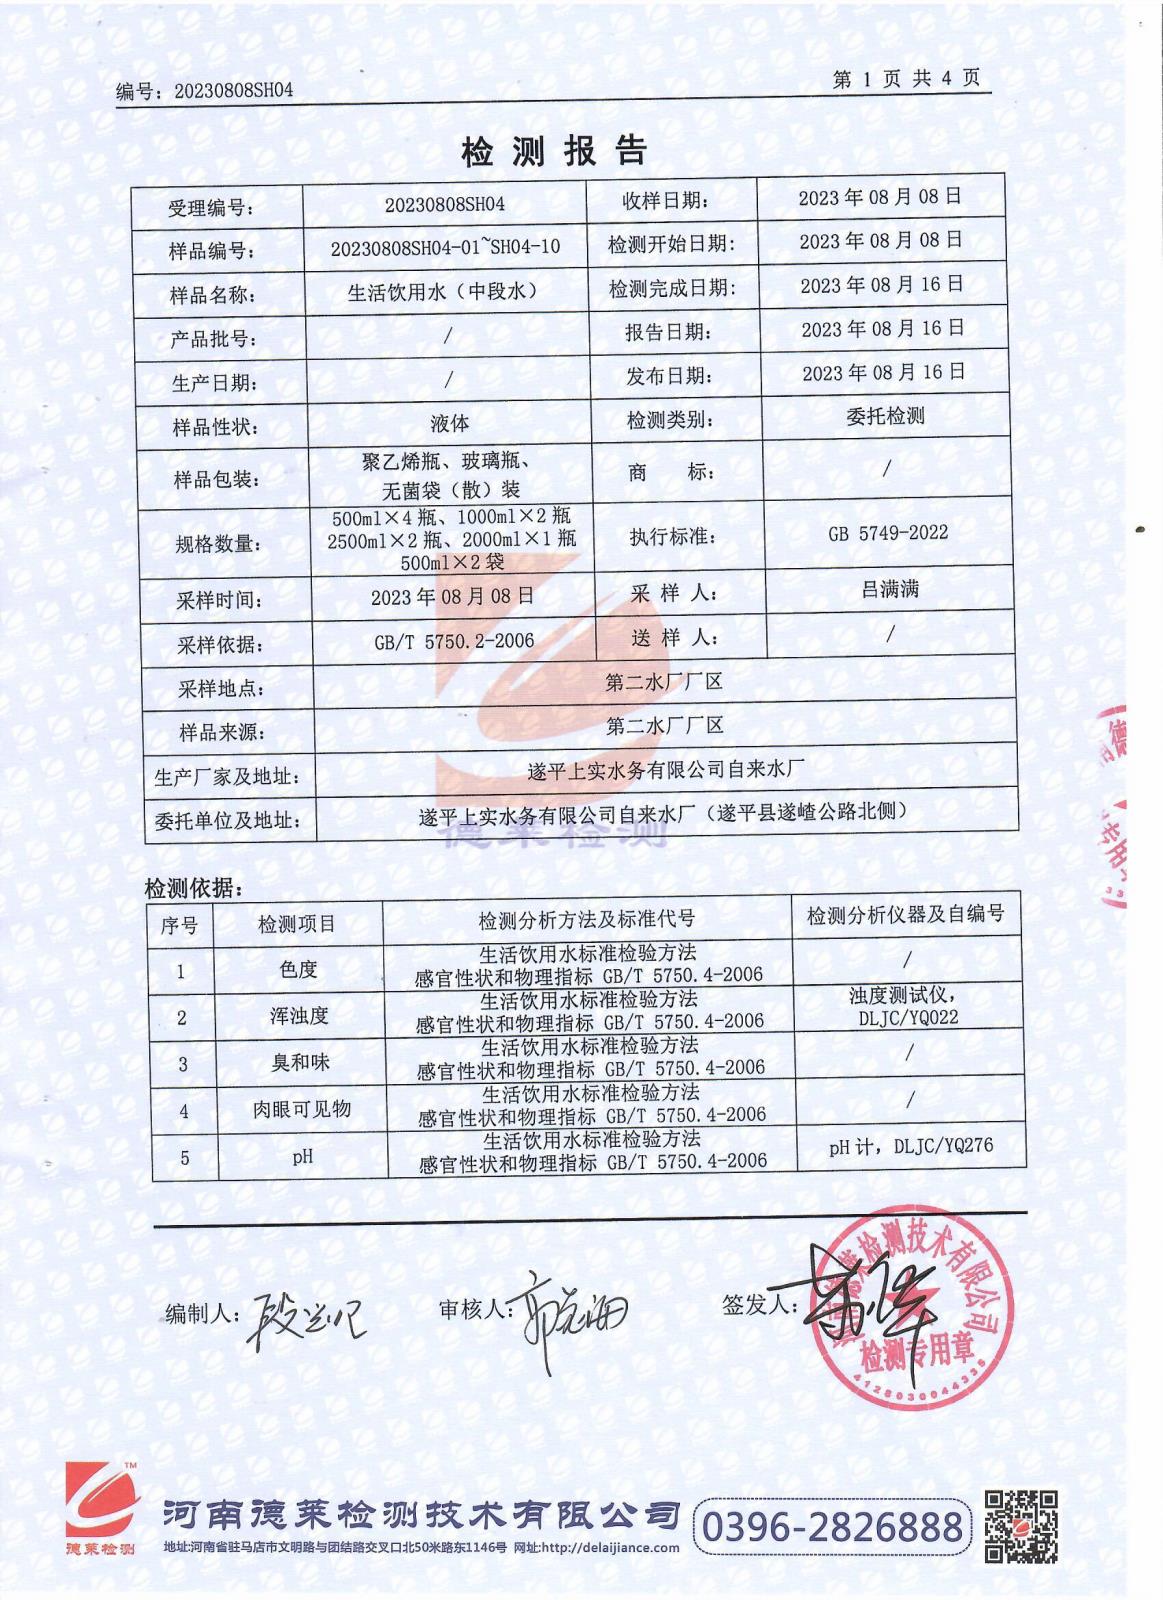 编号：20230808SH04
第 1 页 共 4 页
检 测 报 告
受理编号： 20230808SH04 收样日期： 2023 年 08 月 08 日
样品编号： 20230808SH04-01~SH04-10 检测开始日期： 2023 年 08 月 08 日
样品名称： 生活饮用水（中段水） 检测完成日期： 2023 年 08 月 16 日
产品批号： / 报告日期： 2023 年 08 月 16 日
生产日期： / 发布日期： 2023 年 08 月 16 日
样品性状： 液体 检测类别： 委托检测
样品包装： 聚乙烯瓶、玻璃瓶、
无菌袋（散）装 商 标： /
规格数量： 500ml×4 瓶、1000ml×2 瓶
2500ml×2 瓶、2000ml×1 瓶
500ml×2 袋 执行标准： GB 5749-2022
采样时间： 2023 年 08 月 08 日 采 样 人： 吕满满
采样依据： GB/T 5750.2-2006 送 样 人： /
采样地点： 第二水厂厂区
样品来源： 第二水厂厂区
生产厂家及地址： 遂平上实水务有限公司自来水厂
委托单位及地址： 遂平上实水务有限公司自来水厂（遂平县遂嵖公路北侧）
德莱检测
检测依据：
序号 检测项目 检测分析方法及标准代号 检测分析仪器及自编号
1 色度 生活饮用水标准检验方法
感官性状和物理指标 GB/T 5750.4-2006 /
2 浑浊度 生活饮用水标准检验方法
感官性状和物理指标 GB/T 5750.4-2006 浊度测试仪，
DLJC/YQ022
3 臭和味 生活饮用水标准检验方法
感官性状和物理指标 GB/T 5750.4-2006 /
4 肉眼可见物 生活饮用水标准检验方法
感官性状和物理指标 GB/T 5750.4-2006 /
5 pH 生活饮用水标准检验方法
感官性状和物理指标 GB/T 5750.4-2006 pH 计，DLJC/YQ276
编制人：
审核人：
签发人：
河南德莱检测技术有限公司
检测专用章
4128030044335
TM
德莱检测
河南德莱检测技术有限公司
0396-2826888
地址:河南省驻马店市文明路与团结路交叉口北50米路东1146号 网址:http://delaijiance.com